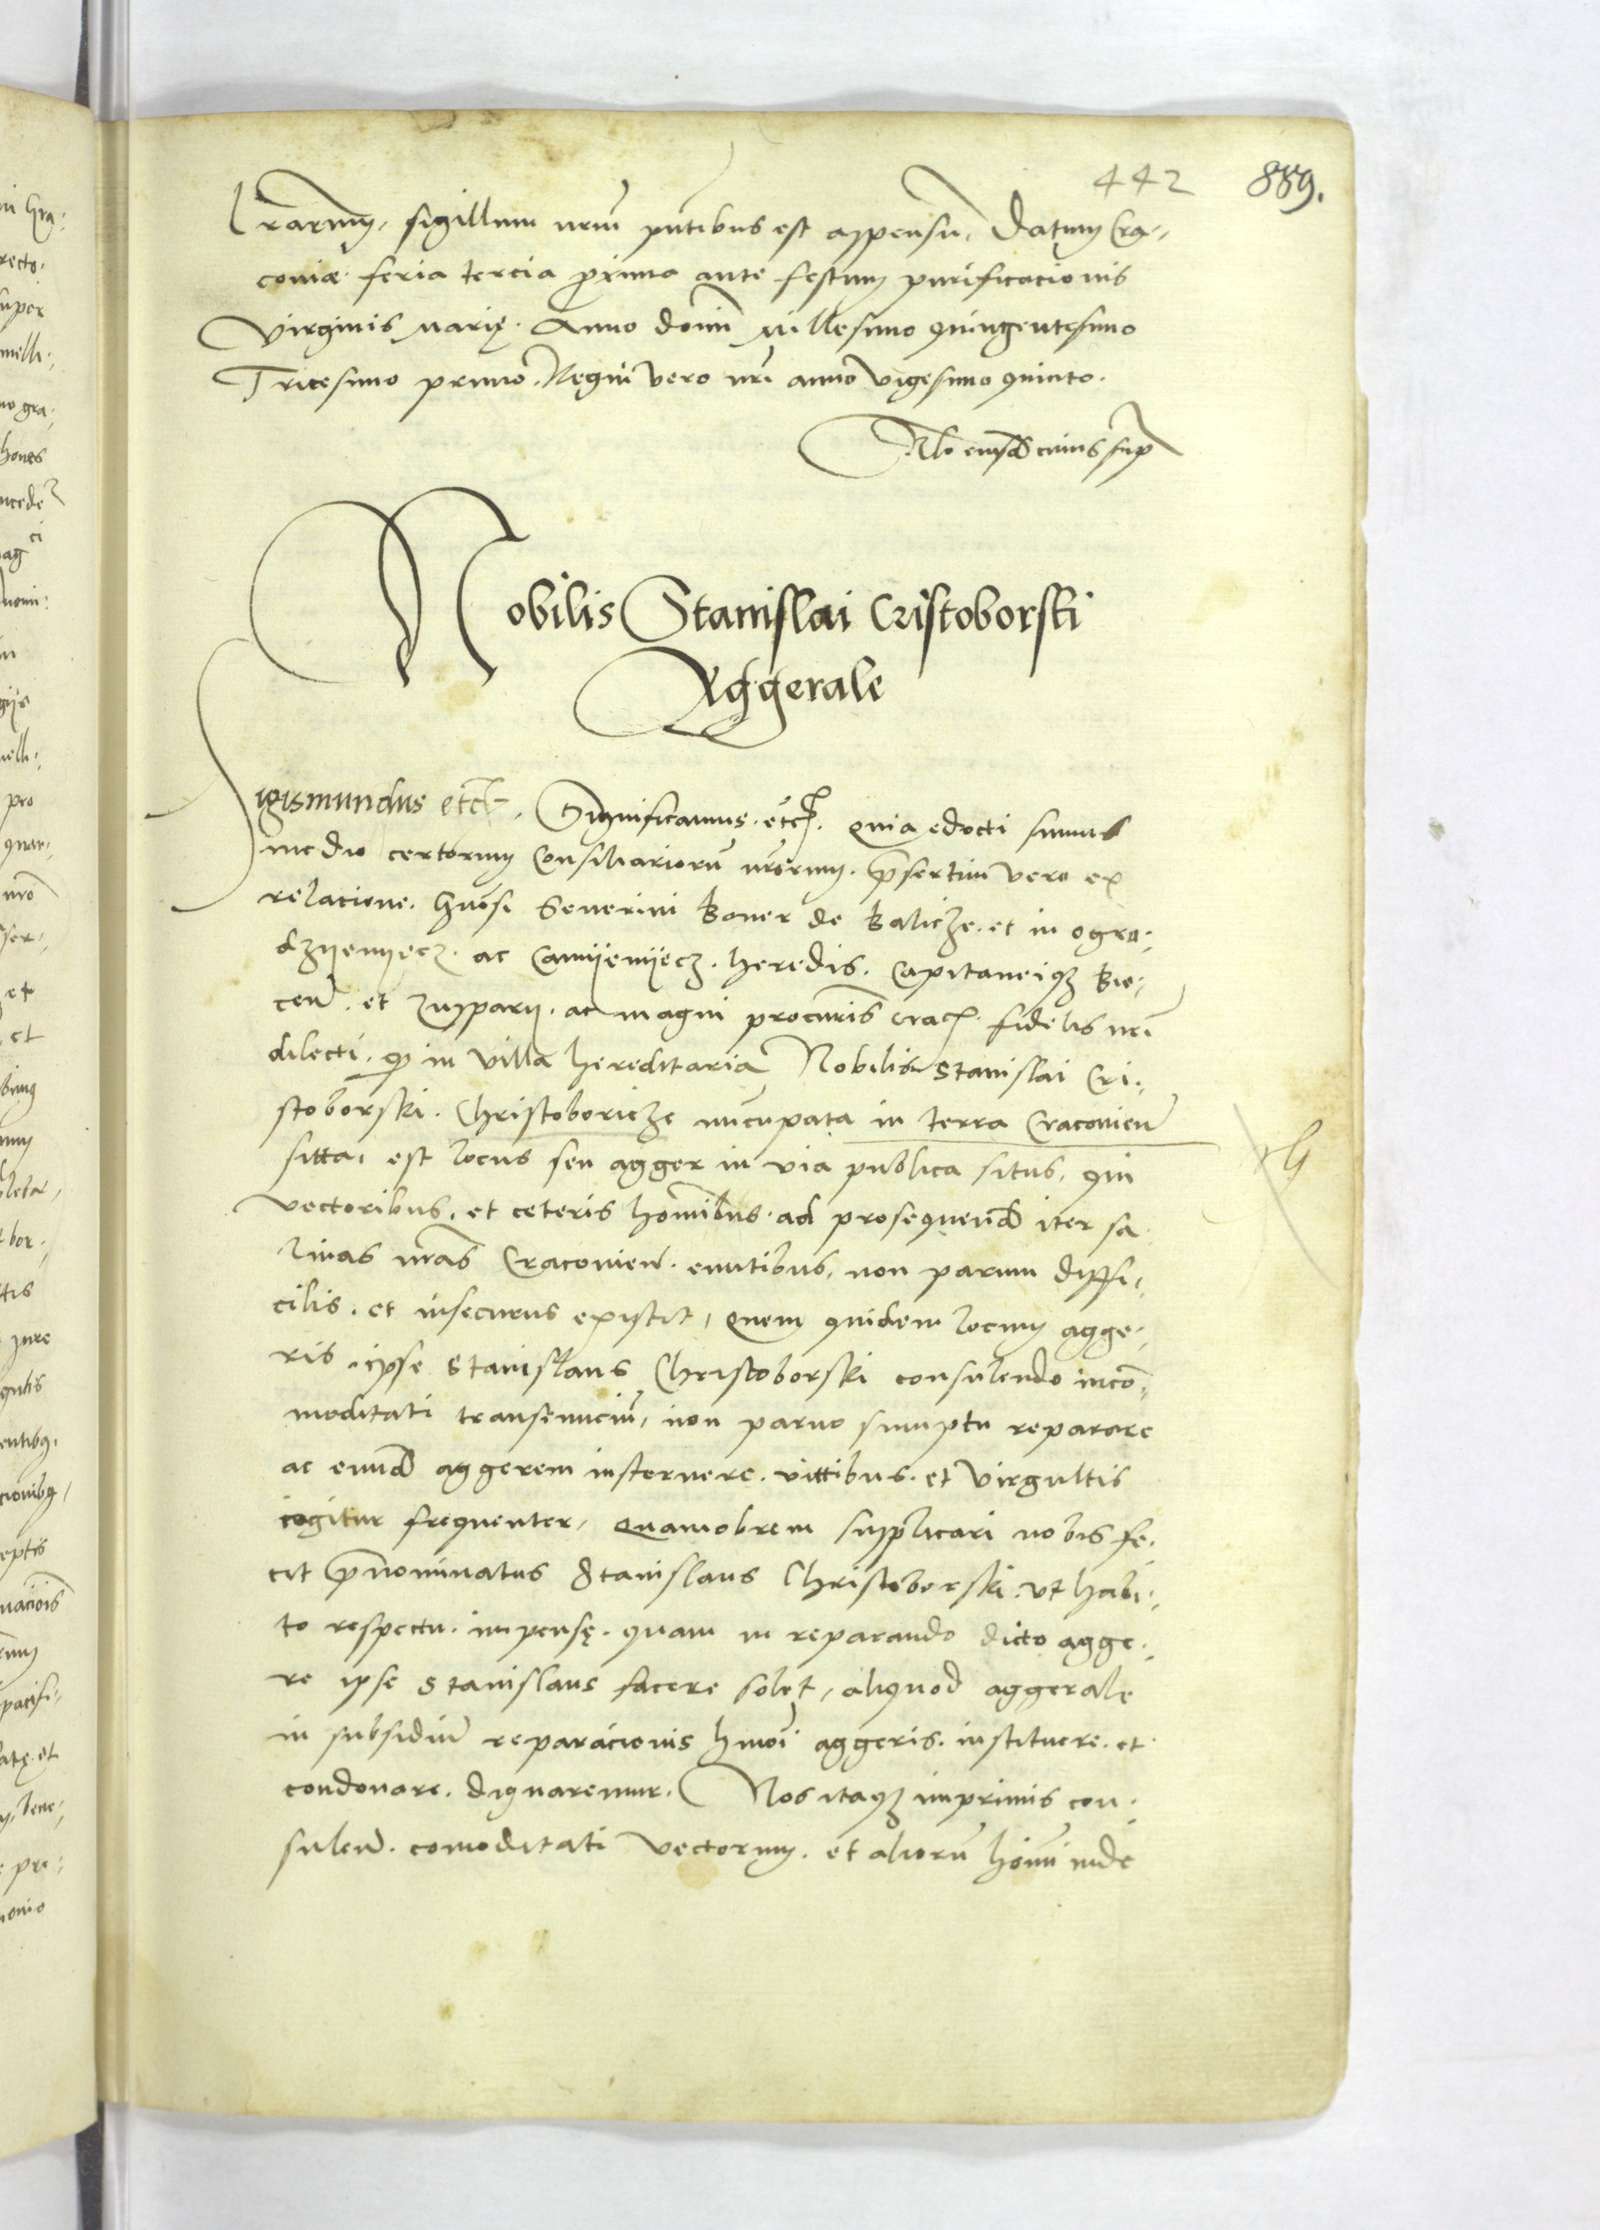 442 889.
Lrarum, sigillum nrum pntibus est appensu, Datum Cra-
coviæ feria tercia proxima ante festum purificacionis
Virginis Marię. Anno domi Millesimo quingentesimo
Tricesimo primo. Regni vero nri anno Vigesimo quinto.
Rlo eiusd cuius sup
Nobilis Stanislai Cristoborski
Aggerale
Sigismundus etc. Significamus. etc. Quia edocti sumus
medio certorum Consiliariorum nrorum. presertim vero ex
relacione. Gnosi Severini Boner de Balicze. et in Ogro-
dzyenyecz. ac Camyenyecz. heredis. Capitaneiq Bie-
cen. et Zupparij. ac magni procuris Crac. fidelis nri
dilecti. q in villa hereditaria Nobilis Stanislai Cri-
stoborski. Christoboricze nucupata in terra Cracovien
sitta. est locus seu agger in via publica situs. qui
vectoribus. et ceteris hominibus. ad prosequend iter sa
linas nras Cracovien. euntibus. non parum diffi-
cilis. et insecurus existit, Quem quidem locum agge-
ris. ipse Stanislaus Christoborski consulendo inco-
moditati transeunciu, non parvo sumptu reparare
ac eund aggerem insternere. vittibus. et virgultis
cogitur frequenter, Quamobrem supplicari nobis fe-
cit prenominatus Stanislaus Christoborski. ut habi-
to respectu. impensę. quam in reparando dicto agge-
re ipse Stanislaus facere solet, aliquod aggerale
in subsidiu reparacionis hmoi aggeris. instituere. et
condonare. dignaremur. Nos itaq imprimis con-
sulen. comoditati vectorum. et aliorum homi inde